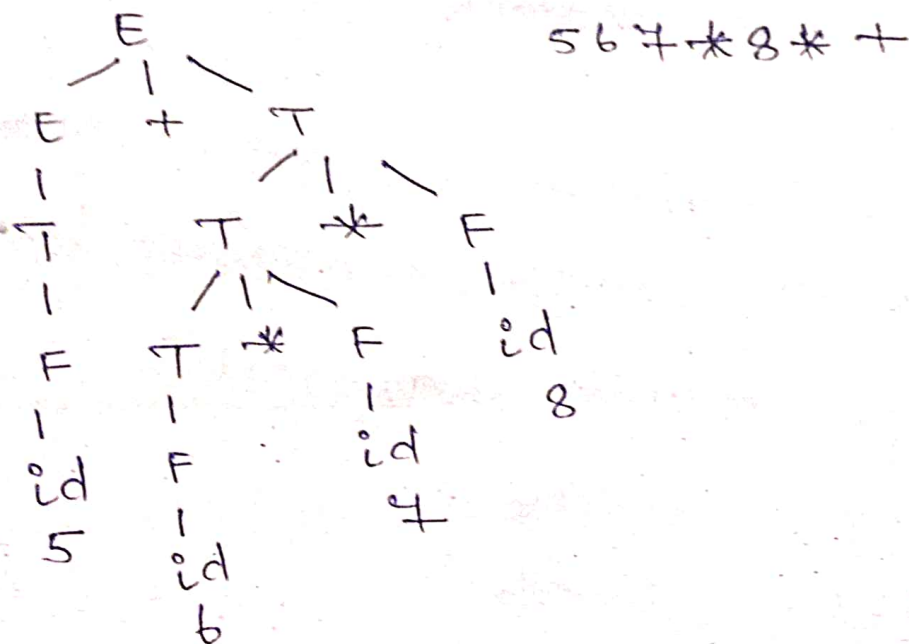 E
5 6 7 * 8 * +
E + T
T T * F
F T * F id
8
id F id
5 7
id
6